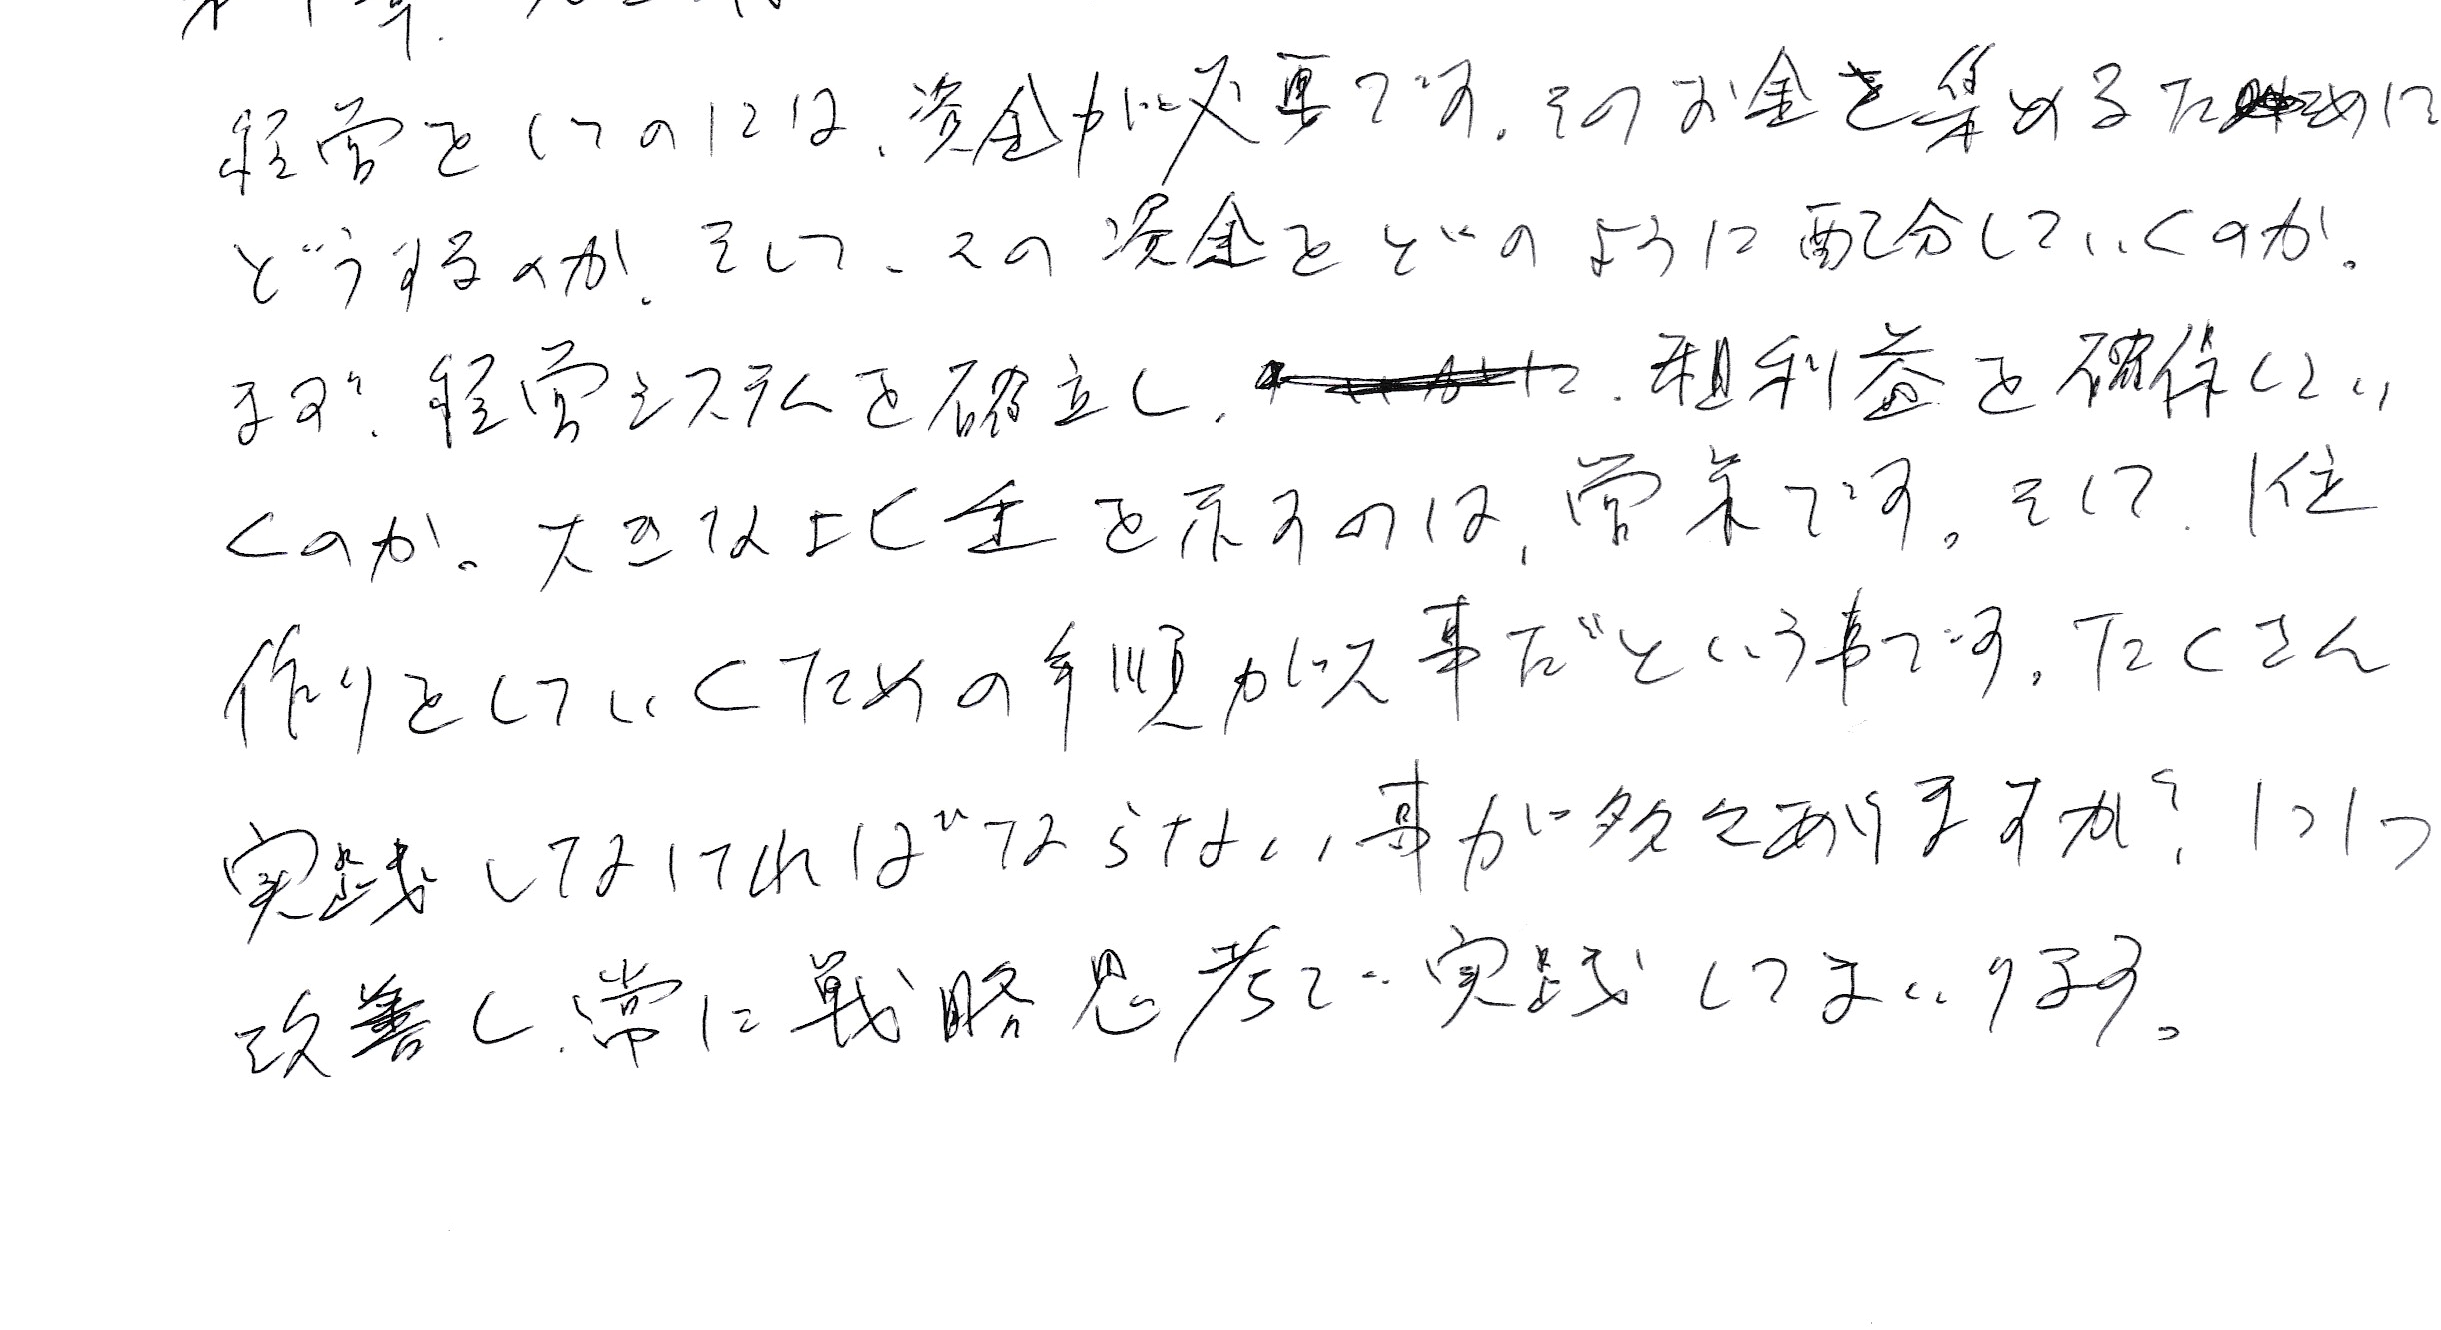 経営をしてのには、資金が必要です。そのお金を集めるために
どうするのか。そして、その資金をどのように配分していくのか。
まず、経営システムを確立し、粗利益を確保してい
くのか。大きな比重を示すのは、営業です。そして、1位
作りをしていくための手順が大事だという事です。たくさん
実践してなければならない事が多くありますが、1つ1つ
改善し、常に戦略思考で実践してまいります。